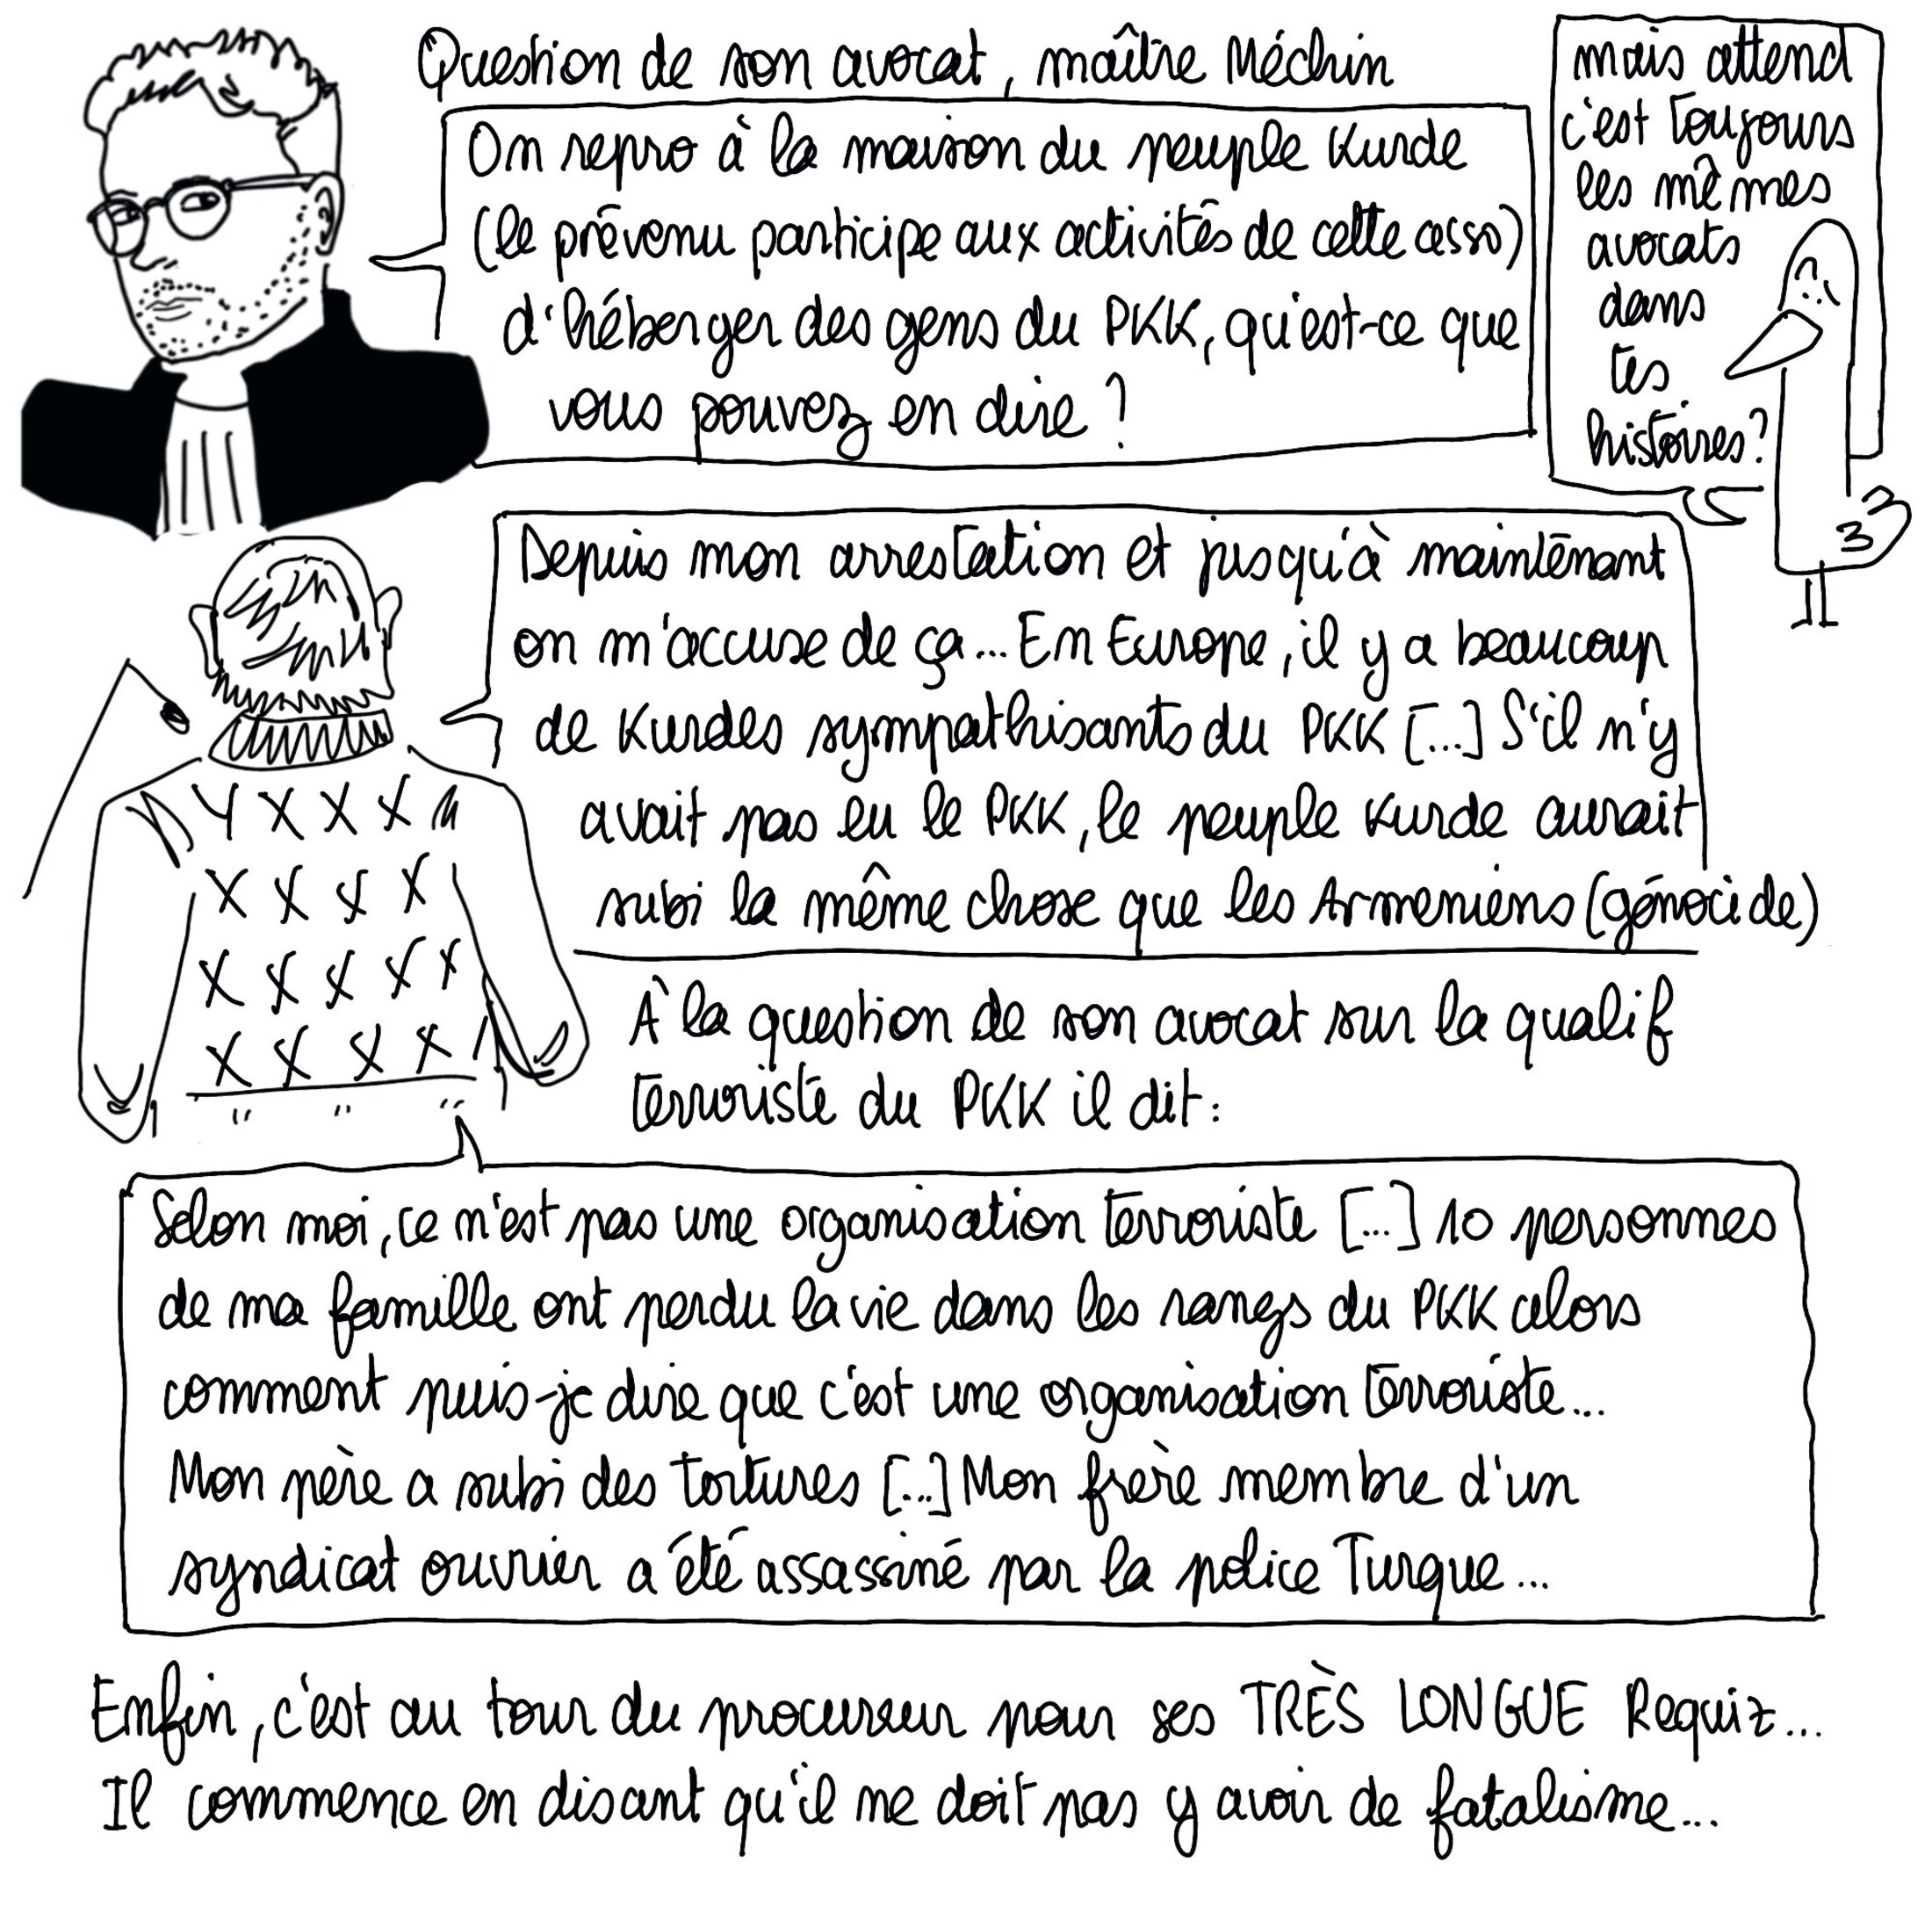 Question de son avocat, maître Méchin
On repro à la maison du peuple Kurde
(le prévenu participe aux activités de cette asso)
d'héberger des gens du PKK, qu'est-ce que
vous pouvez en dire ?
mais attend
c'est toujours
les mêmes
avocats
dans
tes
histoires?
Depuis mon arrestation et jusqu'à maintenant
on m'accuse de ça... En Europe, il y a beaucoup
de Kurdes sympathisants du PKK [...] S'il n'y
avait pas eu le PKK, le peuple Kurde aurait
subi la même chose que les Armeniens (génocide)
À la question de son avocat sur la qualif
terroriste du PKK il dit:
Selon moi, ce n'est pas une organisation terroriste [...] 10 personnes
de ma famille ont perdu la vie dans les rangs du PKK alors
comment puis-je dire que c'est une organisation terroriste...
Mon père a subi des tortures [...] Mon frère membre d'un
syndicat ouvrier a été assassiné par la police Turque...
Enfin, c'est au tour du procureur pour ses TRÈS LONGUE Requiz...
Il commence en disant qu'il ne doit pas y avoir de fatalisme...